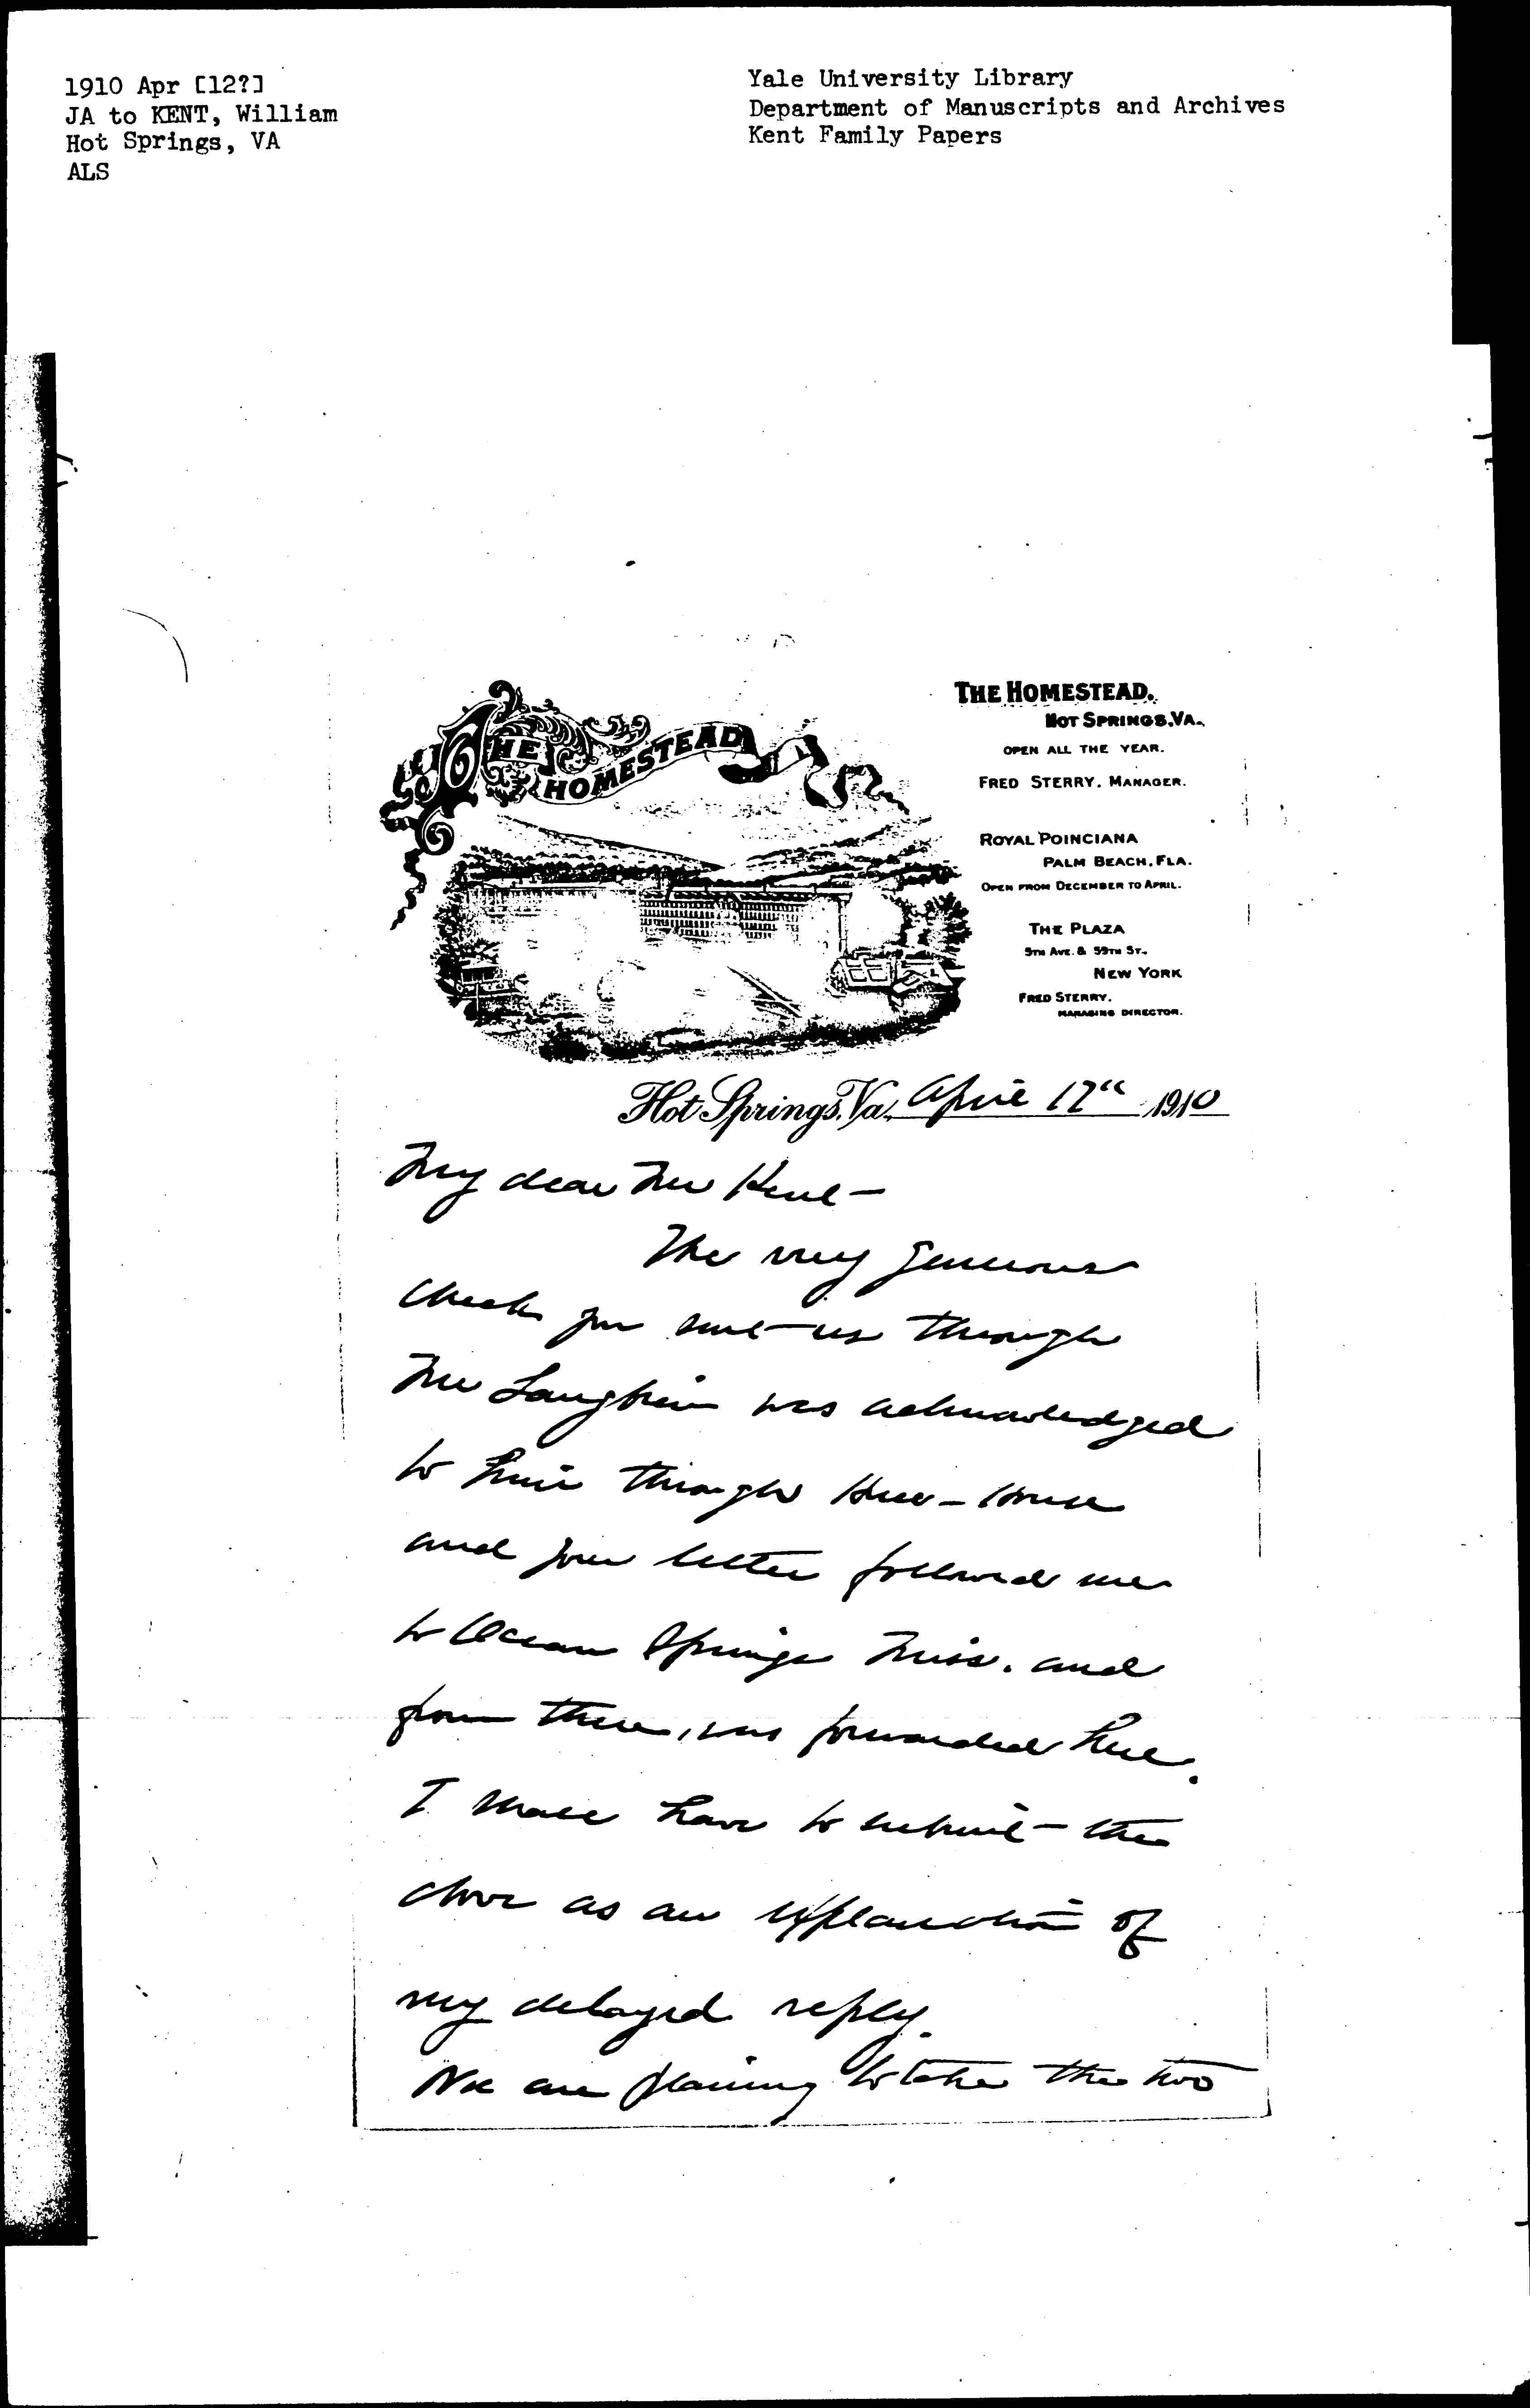 1910 Apr [12?]
JA to KENT, William
Hot Springs, VA
ALS
Yale University Library
Department of Manuscripts and Archives
Kent Family Papers
THE HOMESTEAD
THE HOMESTEAD.
HOT SPRINGS, VA.
OPEN ALL THE YEAR.
FRED STERRY. MANAGER.
ROYAL POINCIANA
PALM BEACH, FLA.
OPEN FROM DECEMBER TO APRIL.
THE PLAZA
5TH AVE. & 59TH ST.
NEW YORK
FRED STERRY.
MANAGING DIRECTOR.
Hot Springs, Va. April 12" 1910
My dear Mr Kent —
The very generous
check you sent us through
Mr was acknowledged
to him through Hull-House
and your letter followed me
to Ocean Springs Miss. and
from there, was forwarded here.
I shall have to submit the
above as an explanation of
my delayed reply.
We are planning to take the two